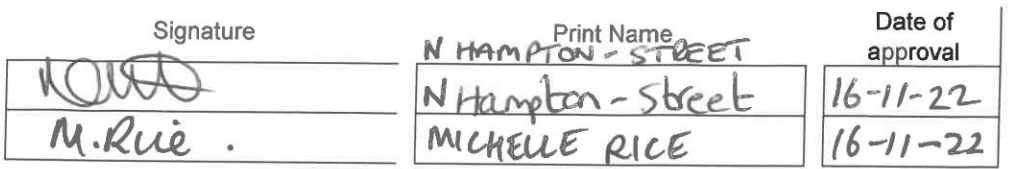 Signature Print Name Date of
N HAMPTON - STREET approval
N Hampton - Street 16-11-22
M. Rice . MICHELLE RICE 16-11-22